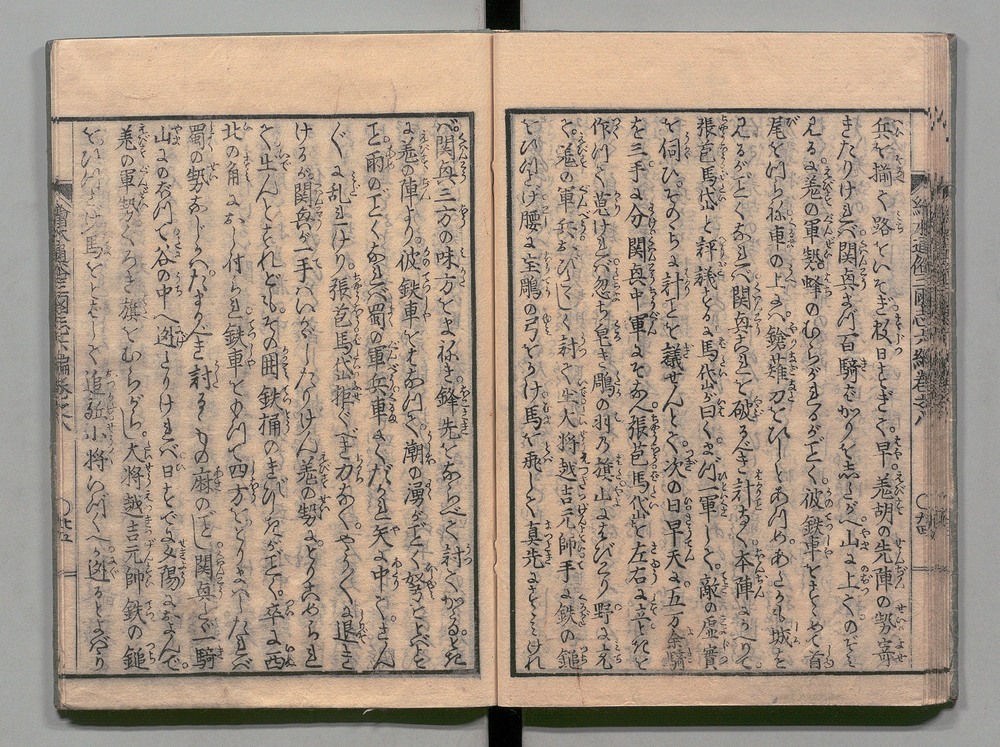 兵を揃へて路をいそぎ数日をすぎて。早羗胡の先陣の勢寄
きたりけれバ関興まづ百騎をかりをしたがへ山に上てのぞミ
見るに羗の軍勢蜂のむらがれるがごとく。彼鉄車をとゞめて首
尾をつらね車の上にハ鎗薙刀をひしとあつめあたかも城を
見るがごとくなれバ関興これを破るべき計なく本陣にかへりて
張苞馬岱と評議をするに馬岱が曰くまづ軍して。敵の虚實
を伺ひ。そのゝちに計ごとを議せんとて次の日早天に五万余騎
を三手に分関興中軍にそなへ張苞馬岱を左右に立てを
作りて蒐けれバ忽ち皂き雕の羽の旗山にはびこり野に充
て。羗の軍兵おびたゞしく討て出大将越吉元帥手に鉄の鎚
をひつさげ腰に宝雕の弓をかけ馬を飛して真先にすゝミけれ
バ。関興三方の味方をまねき。鋒先をならべて討てかゝる。とき
に羗の陣より。彼鉄車をはなつて。潮の湧がごとく弩をとばせ
て雨のごとくなれバ蜀の軍兵車にくだかれ矢に中てさん
ぐに乱れけり。張苞馬岱拒ぐべき力なく。やうやく退き
けるが関興が一手ハいかゞしたりけん羗の勢にとりこめられ
て出んとすれどもその囲鉄桶のきびしきがごとく。卒に西
北の角におし付られ鉄車をもつて四方をとりまハしたれバ
蜀の勢なじかハたまるべき討るゝもの麻のごとく関興たゞ一騎
山にそふて。谷の中へ逃をりけれバ日すでに夕陽におよんで。
羗の軍勢くろき旗をむらがらし。大将越吉元帥鉄の鎚
をひつさげ馬をとばして追訴小将いづくへか逃るとよバり